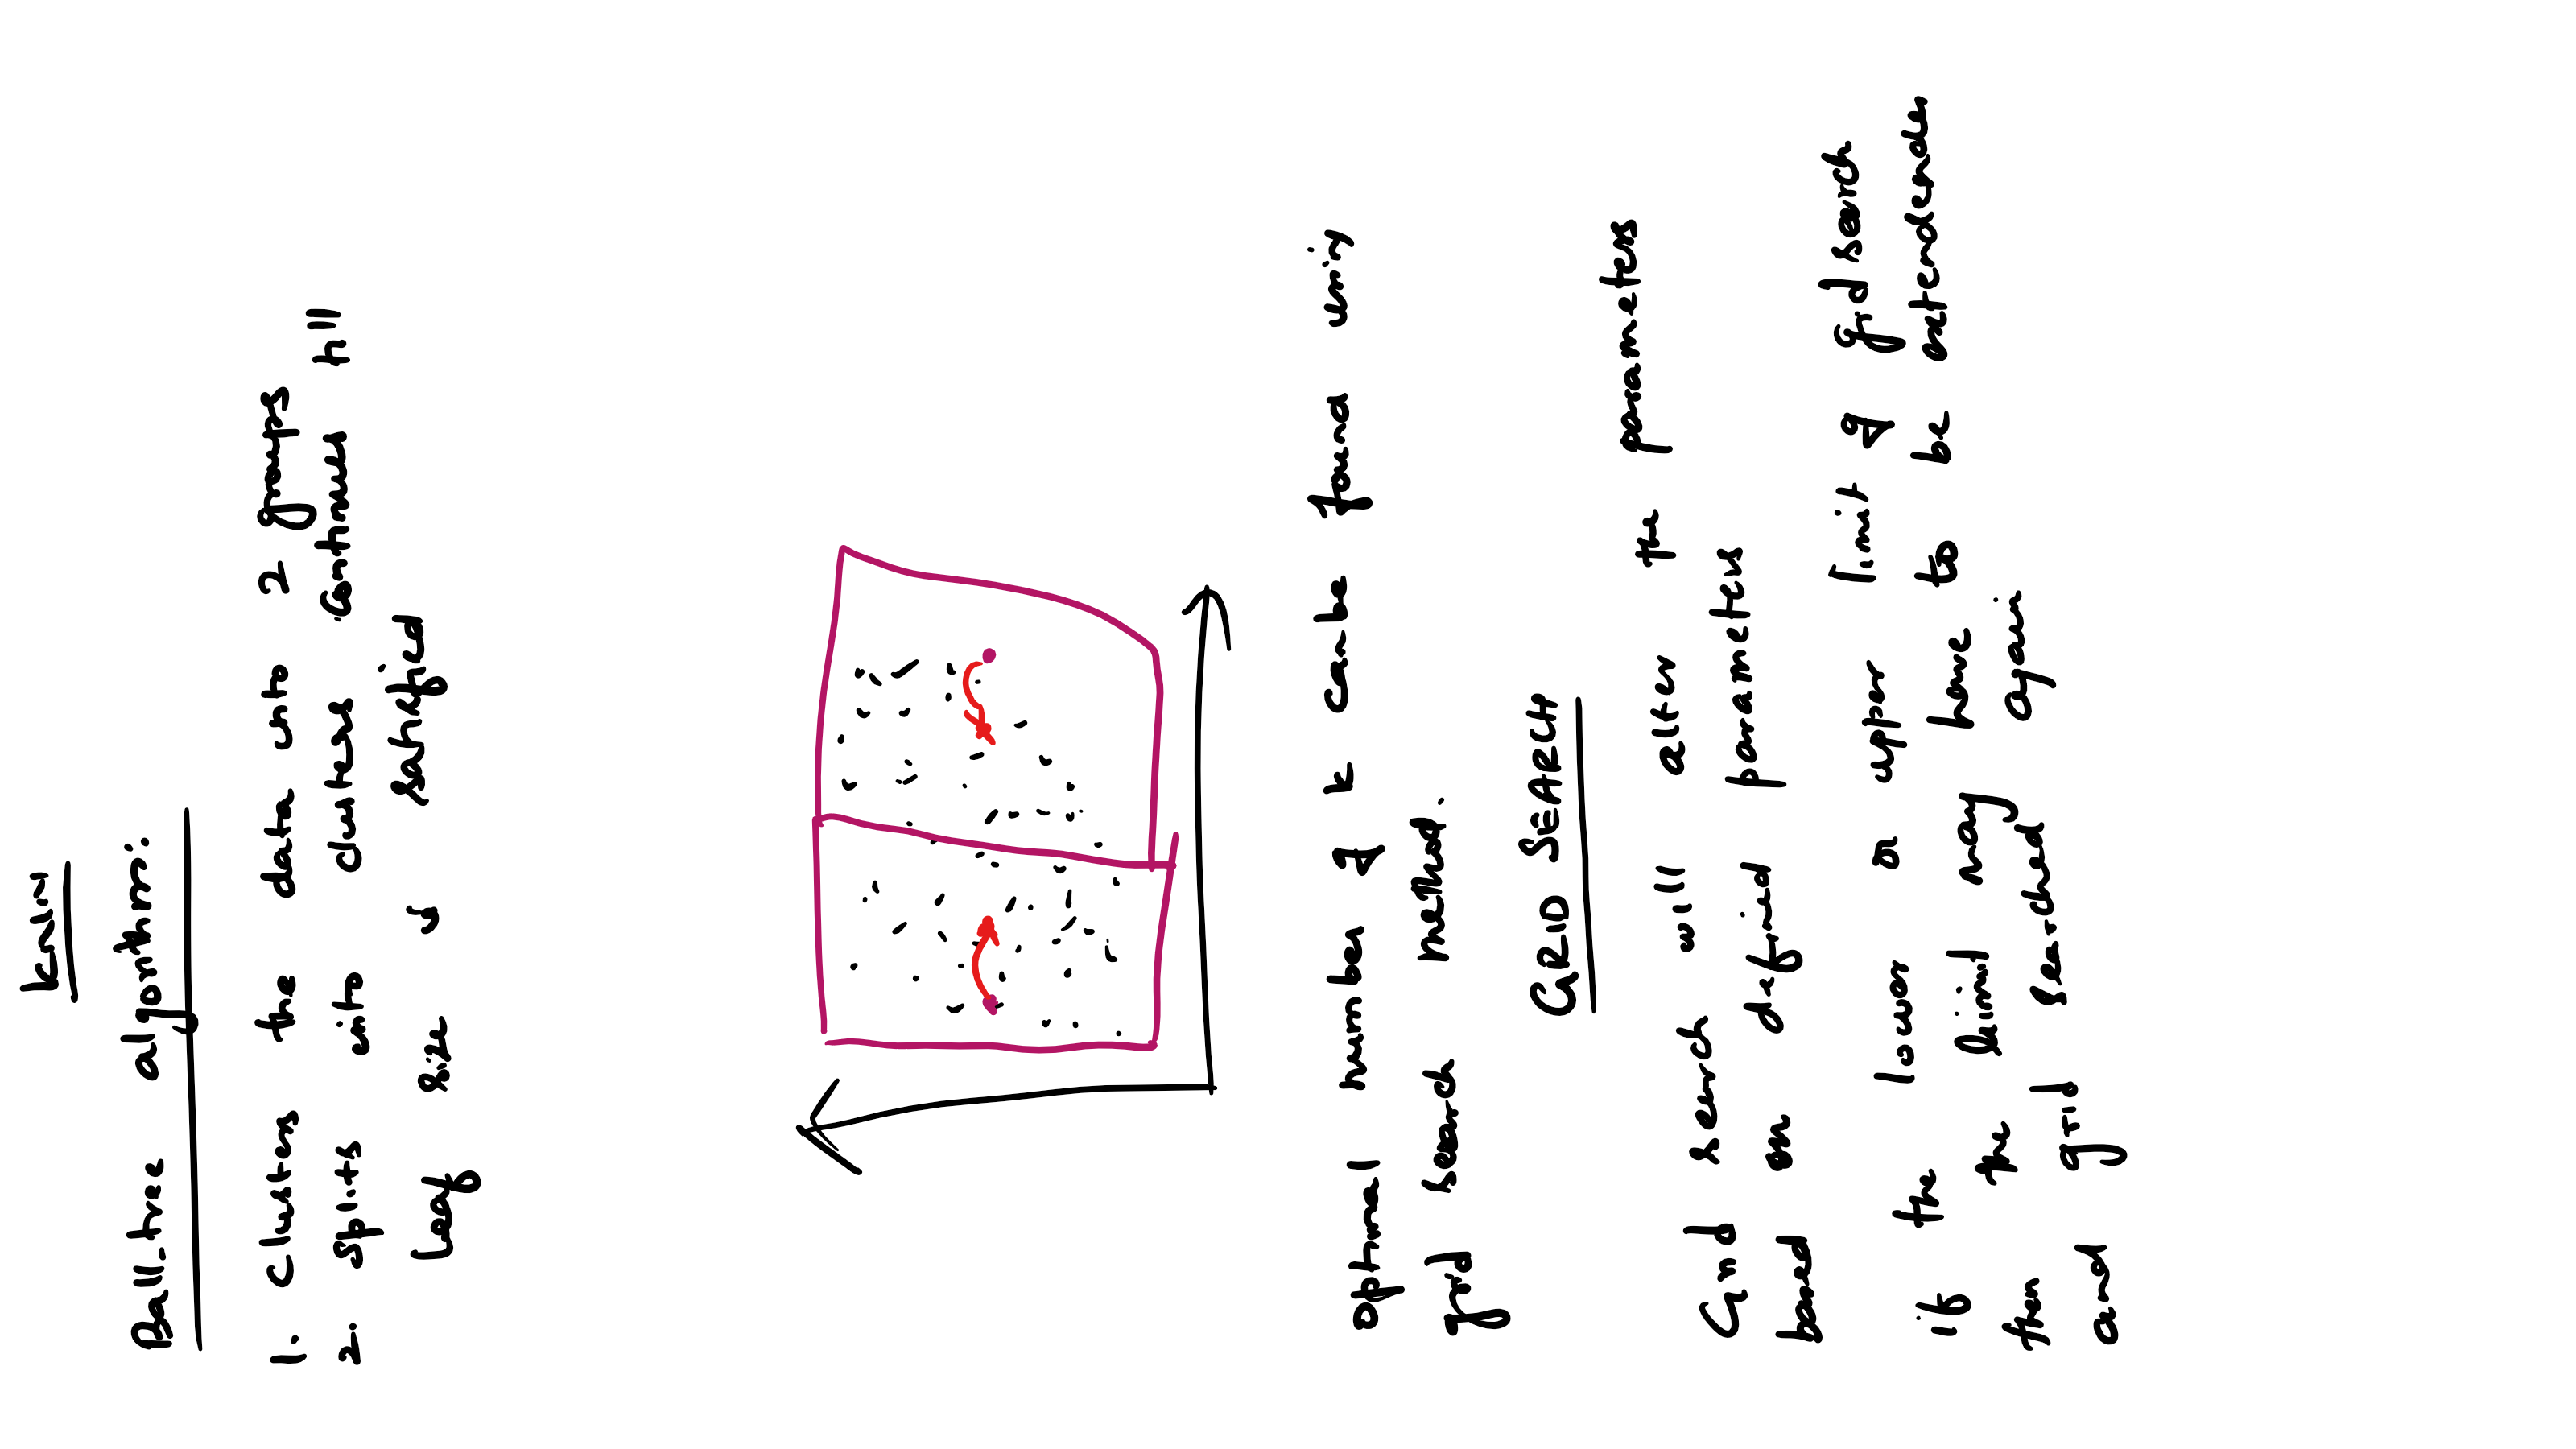 KNN
Ball_tree algorithm:
1. Clusters the data into 2 groups
2. splits into clusters continues till
leaf size is satisfied
optimal number of k canbe found using
grid search method.
GRID SEARCH
Grid search will alter the parameters
based on defined parameters
if the lower or upper limit of gridsearch
then the limit may have to be extendended
and grid searched again